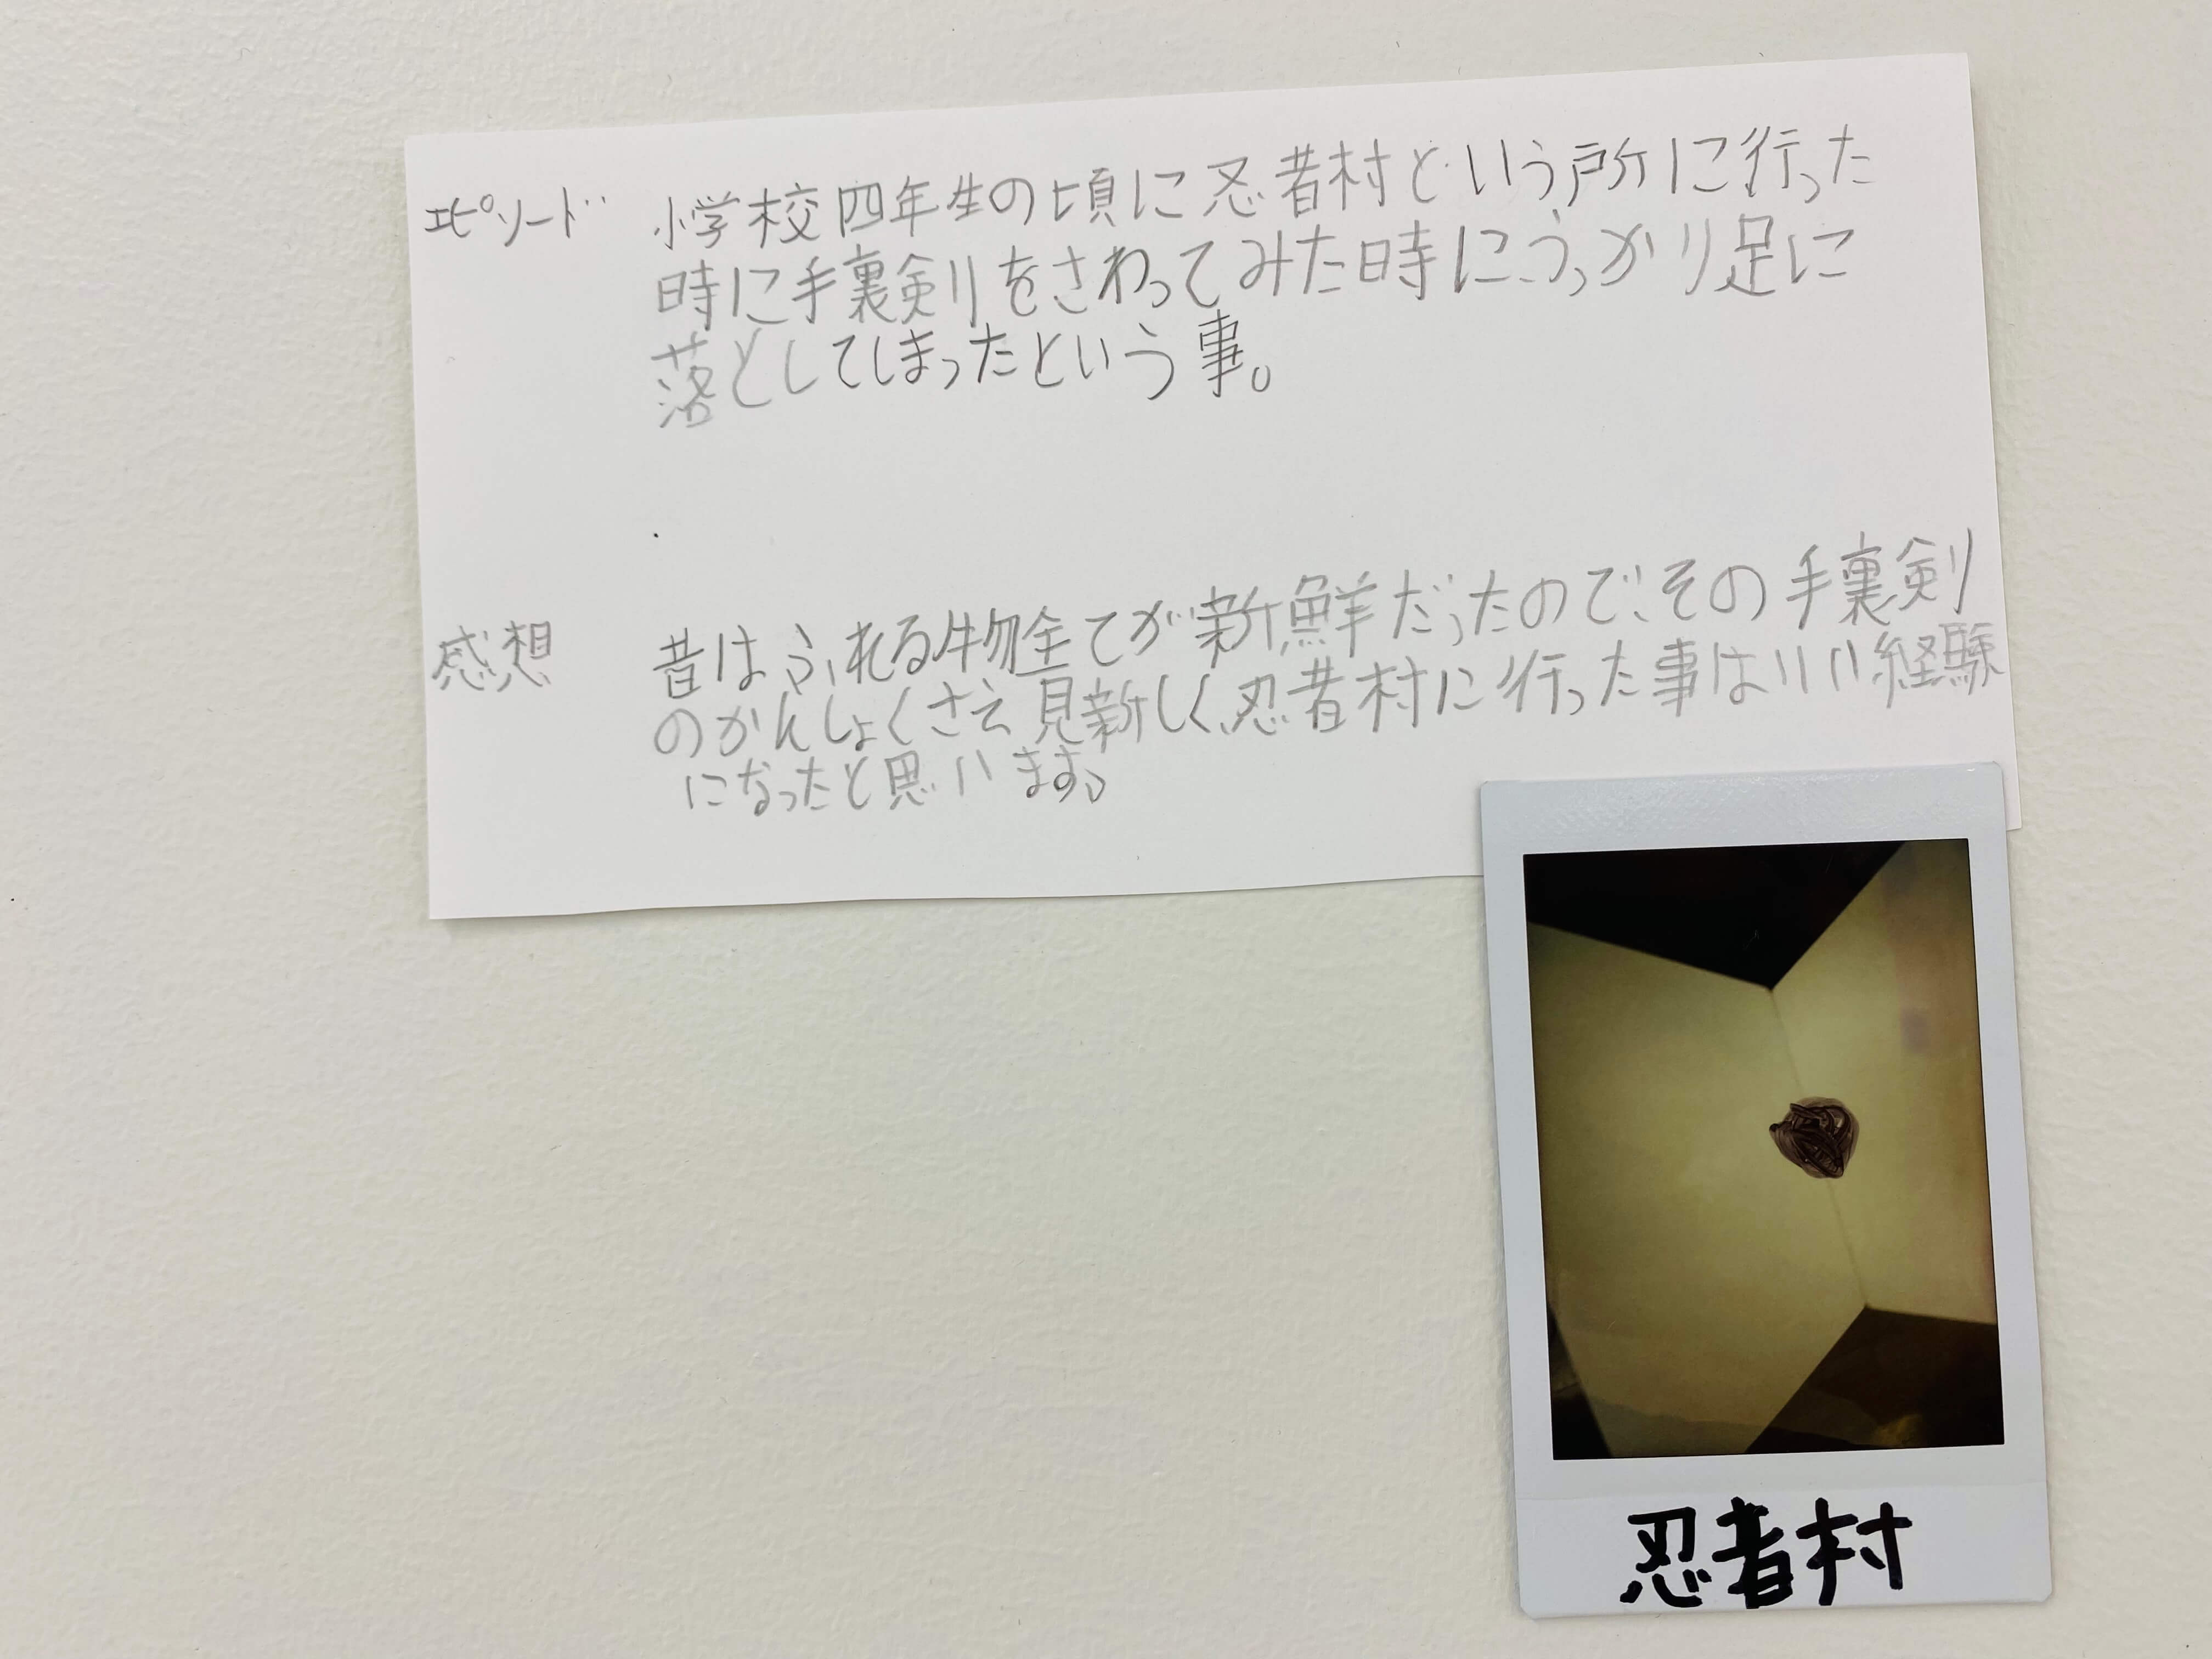 エピソード 小学校四年生の頃に忍者村という所に行った
時に手裏剣をさわってみた時に、うっかり足に
落としてしまったという事。
感想 昔は、ふれる物全てが新鮮だったので、その手裏剣
のかんしょくさえ見新しく、忍者村に行った事はいい経験
になったと思います。
忍者村